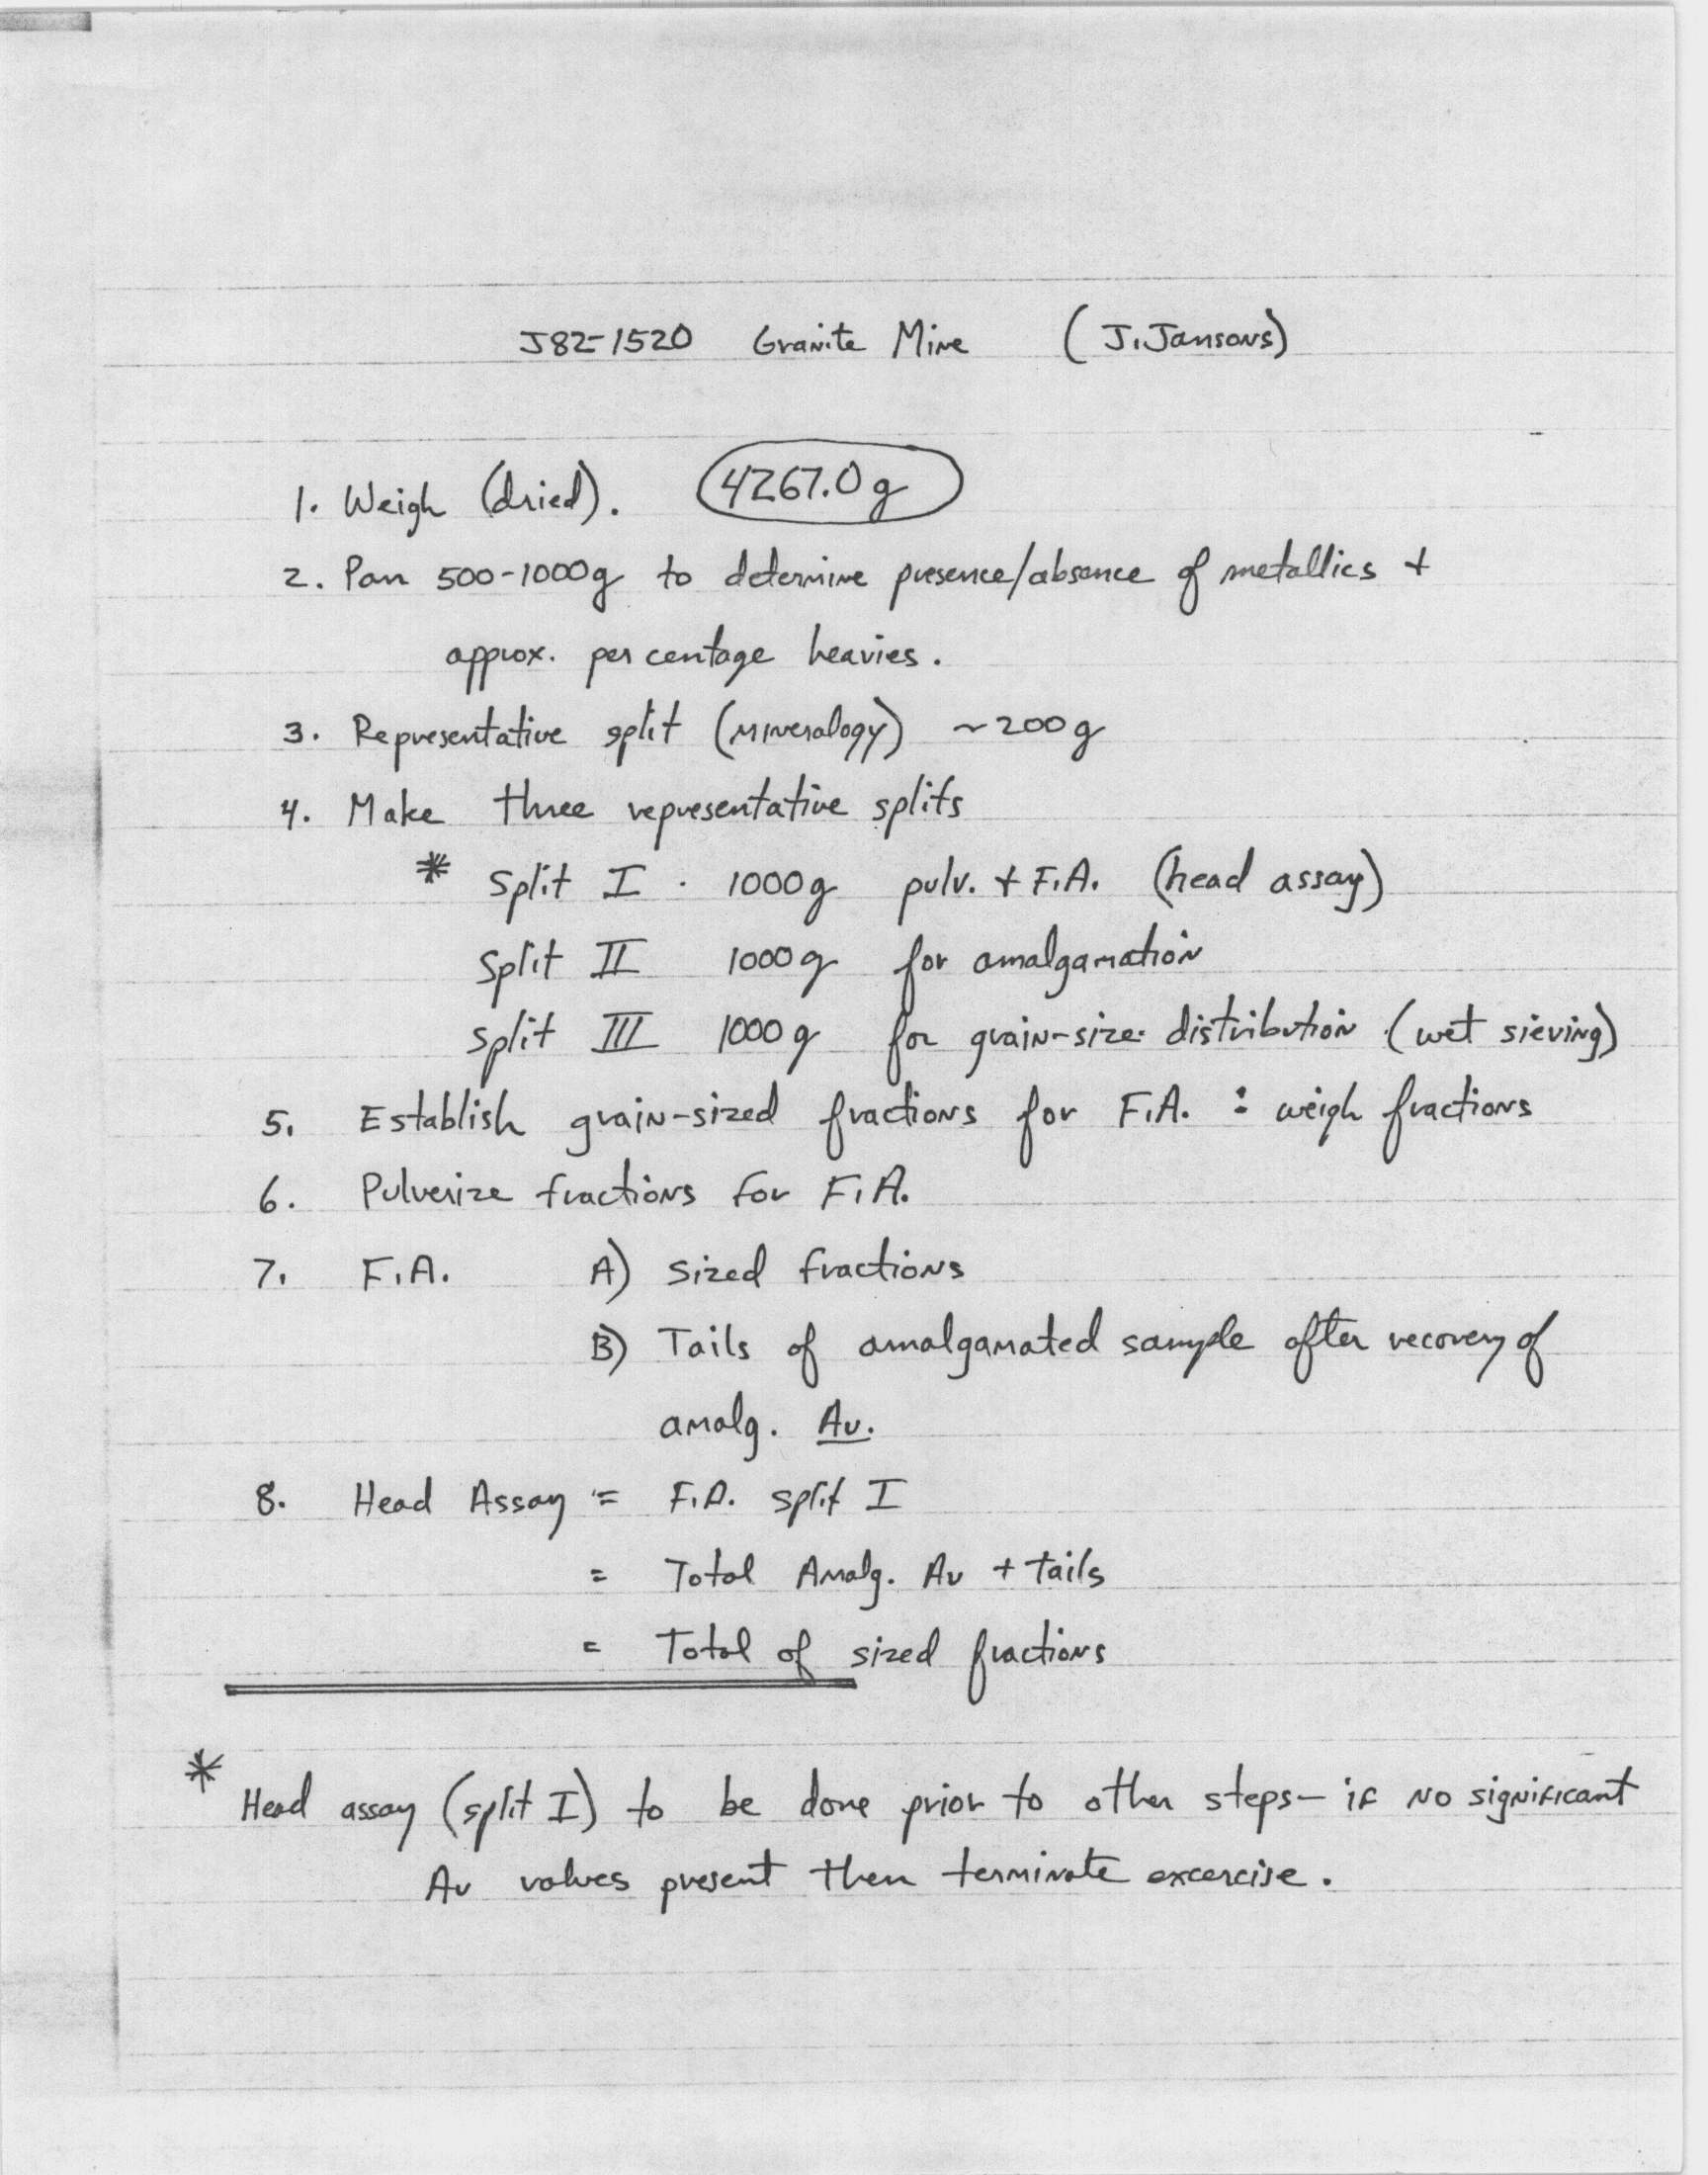 J82-1520 Granite Mine (J. Jansons)
1. Weigh (dried). 4267.0g
2. Pan 500-1000g to determine presence/absence of metallics +
approx. percentage heavies.
3. Representative split (mineralogy) ~200g
4. Make three representative splits
* Split I . 1000g pulv. + F.A. (head assay)
Split II 1000g for amalgamation
Split III 1000g for grain-size distribution (wet sieving)
5. Establish grain-sized fractions for F.A. : weigh fractions
6. Pulverize fractions for F.A.
7. F.A. A) Sized fractions
B) Tails of amalgamated sample after recovery of
amalg. Au.
8. Head Assay = F.A. split I
= Total Amalg. Au + tails
= Total of sized fractions
* Head assay (split I) to be done prior to other steps - if no significant
Au values present then terminate excercise.